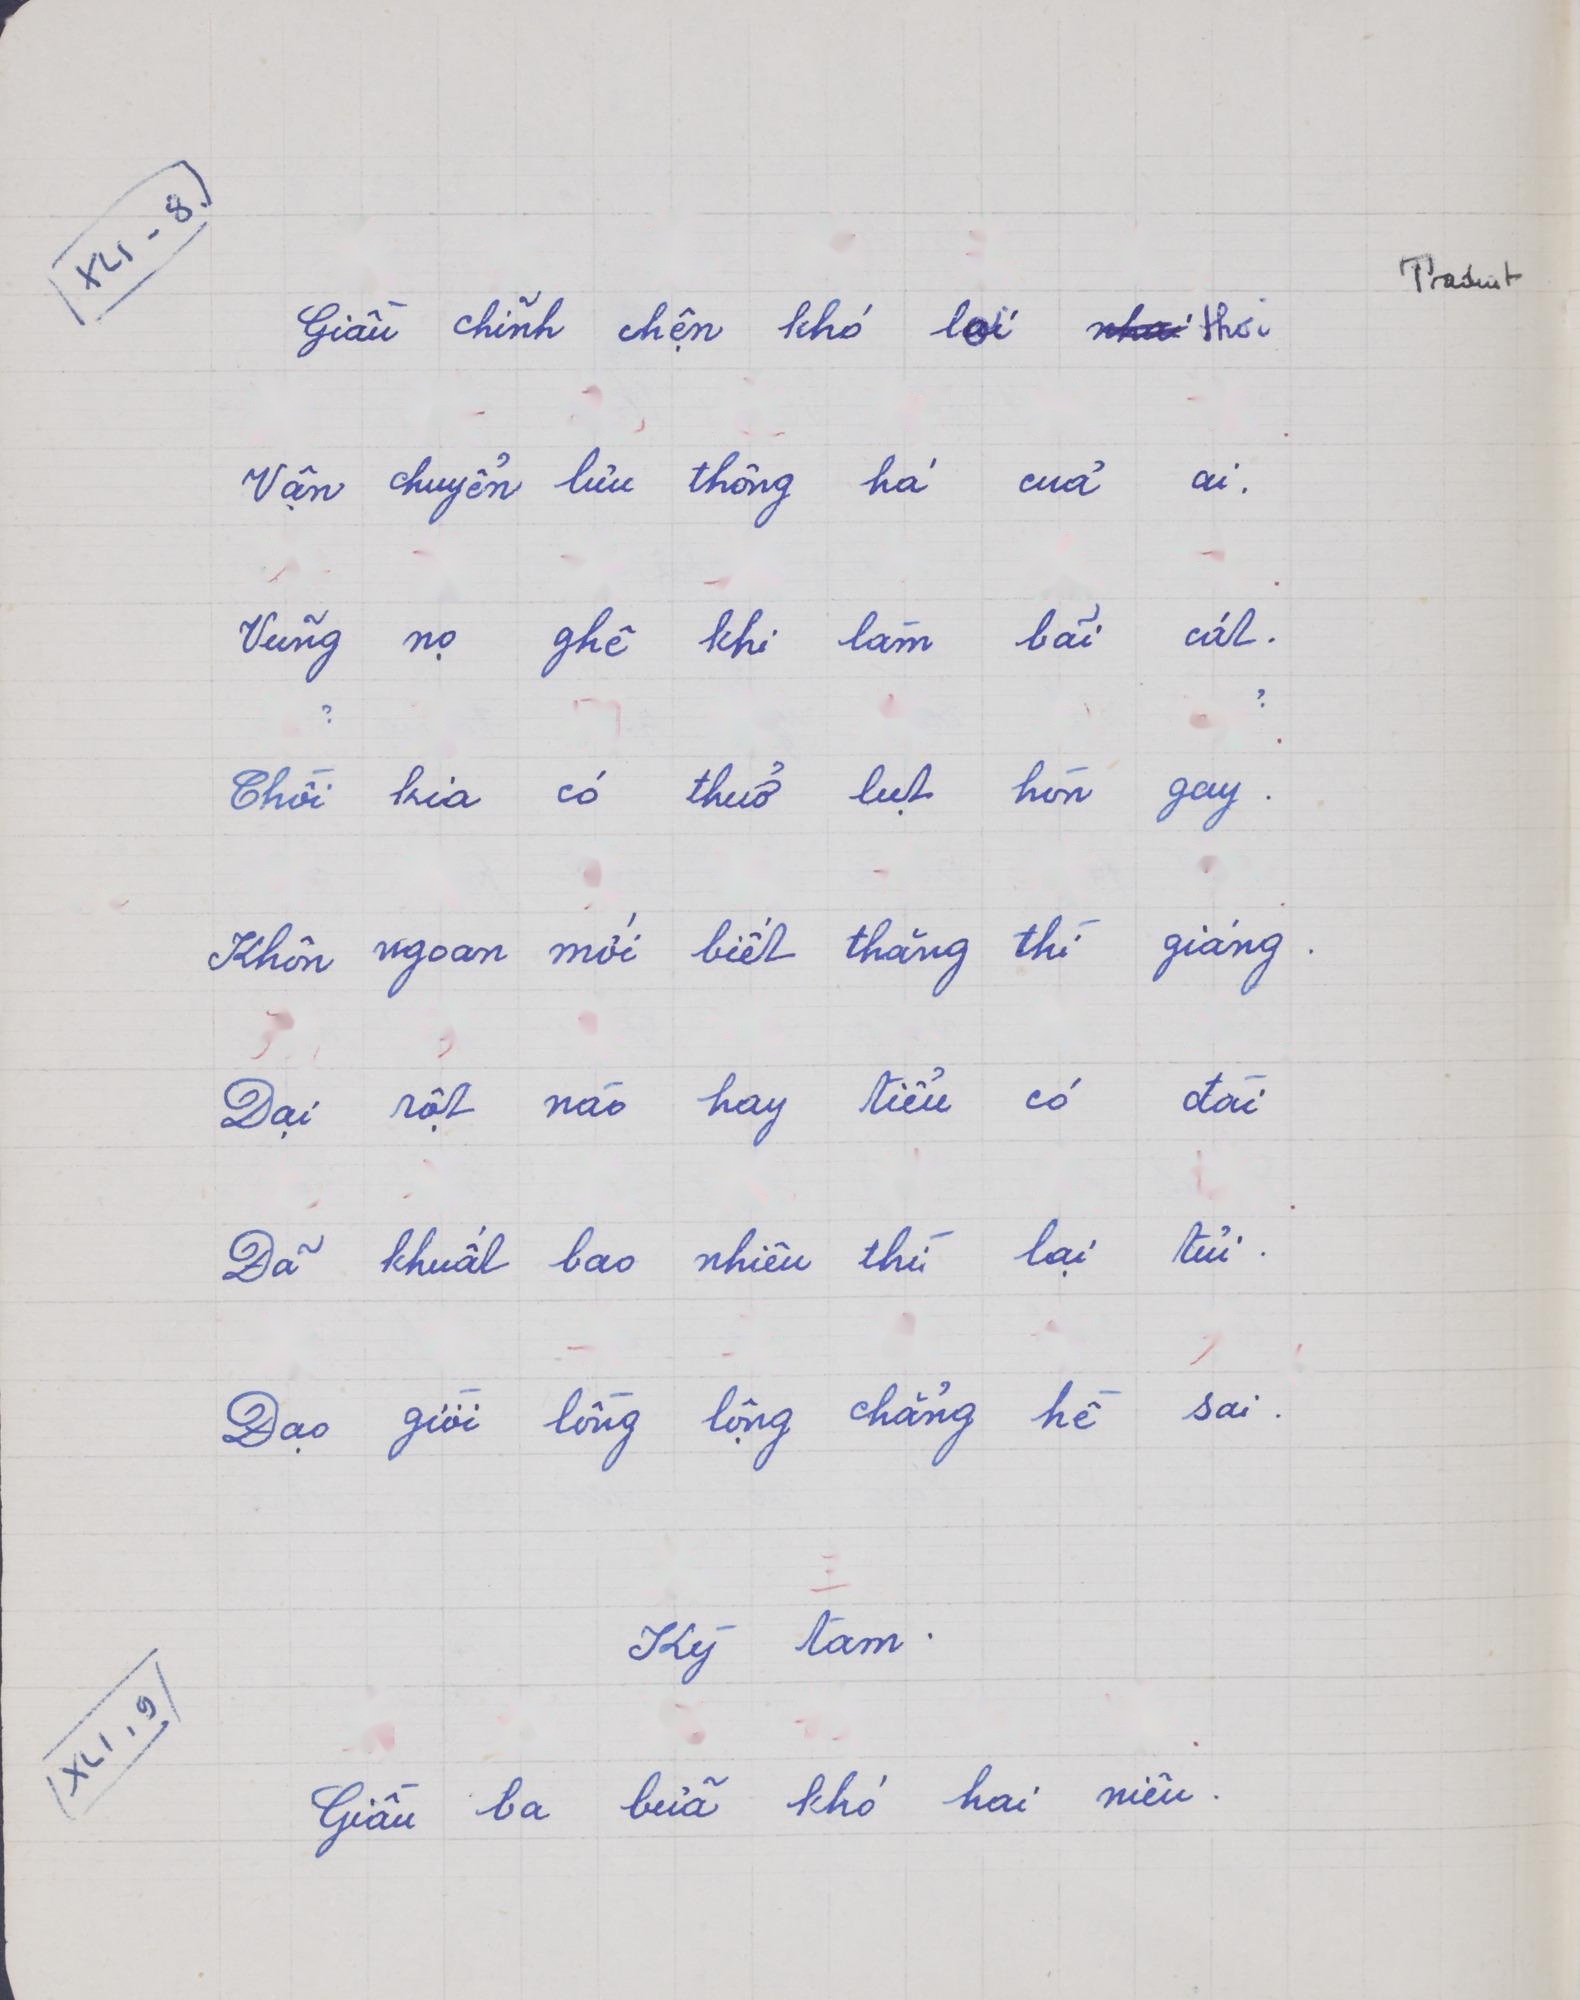 XLI - 8
Traduit
Giầu chĩnh chện khó lơí thơi
Vận chuyển lưu thông há cuả ai.
Vũng nọ ghê khi làm bãi cát.
Chồi kia có thuở lụt hòn gay.
Khôn ngoan mới biết thăng thì giáng.
Dại rột nào hay tiểu có đài
Đã khuất bao nhiêu thì lại tủi.
Đạo giời lồng lộng chẳng hề sai.
Kỳ tam.
XLI, 9
Giầu ba bữa khó hai niêu.